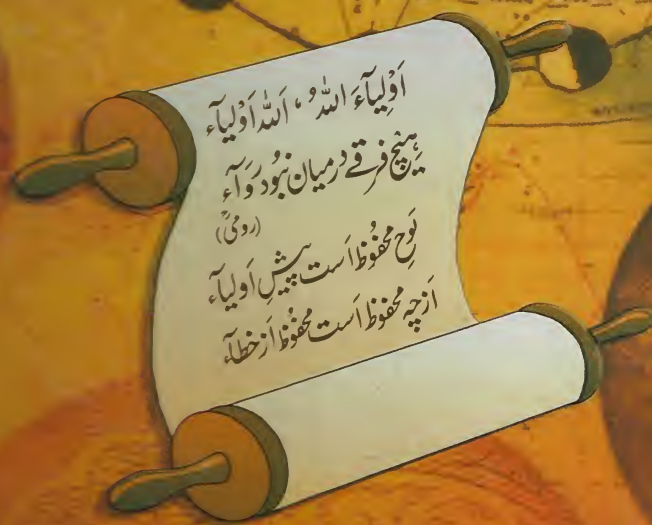 اَوْلِیآءَ اللہُ ، اَللہ اَوْلیآء
ہِیْچ فرقے درمیان نبُود رَوَآء
(رومیؒ)
لَوحِ محفُوظ اَست پیشِ اَولیآء
اَزچِہ محفوظ اَست محفُوظ اَز خطآء